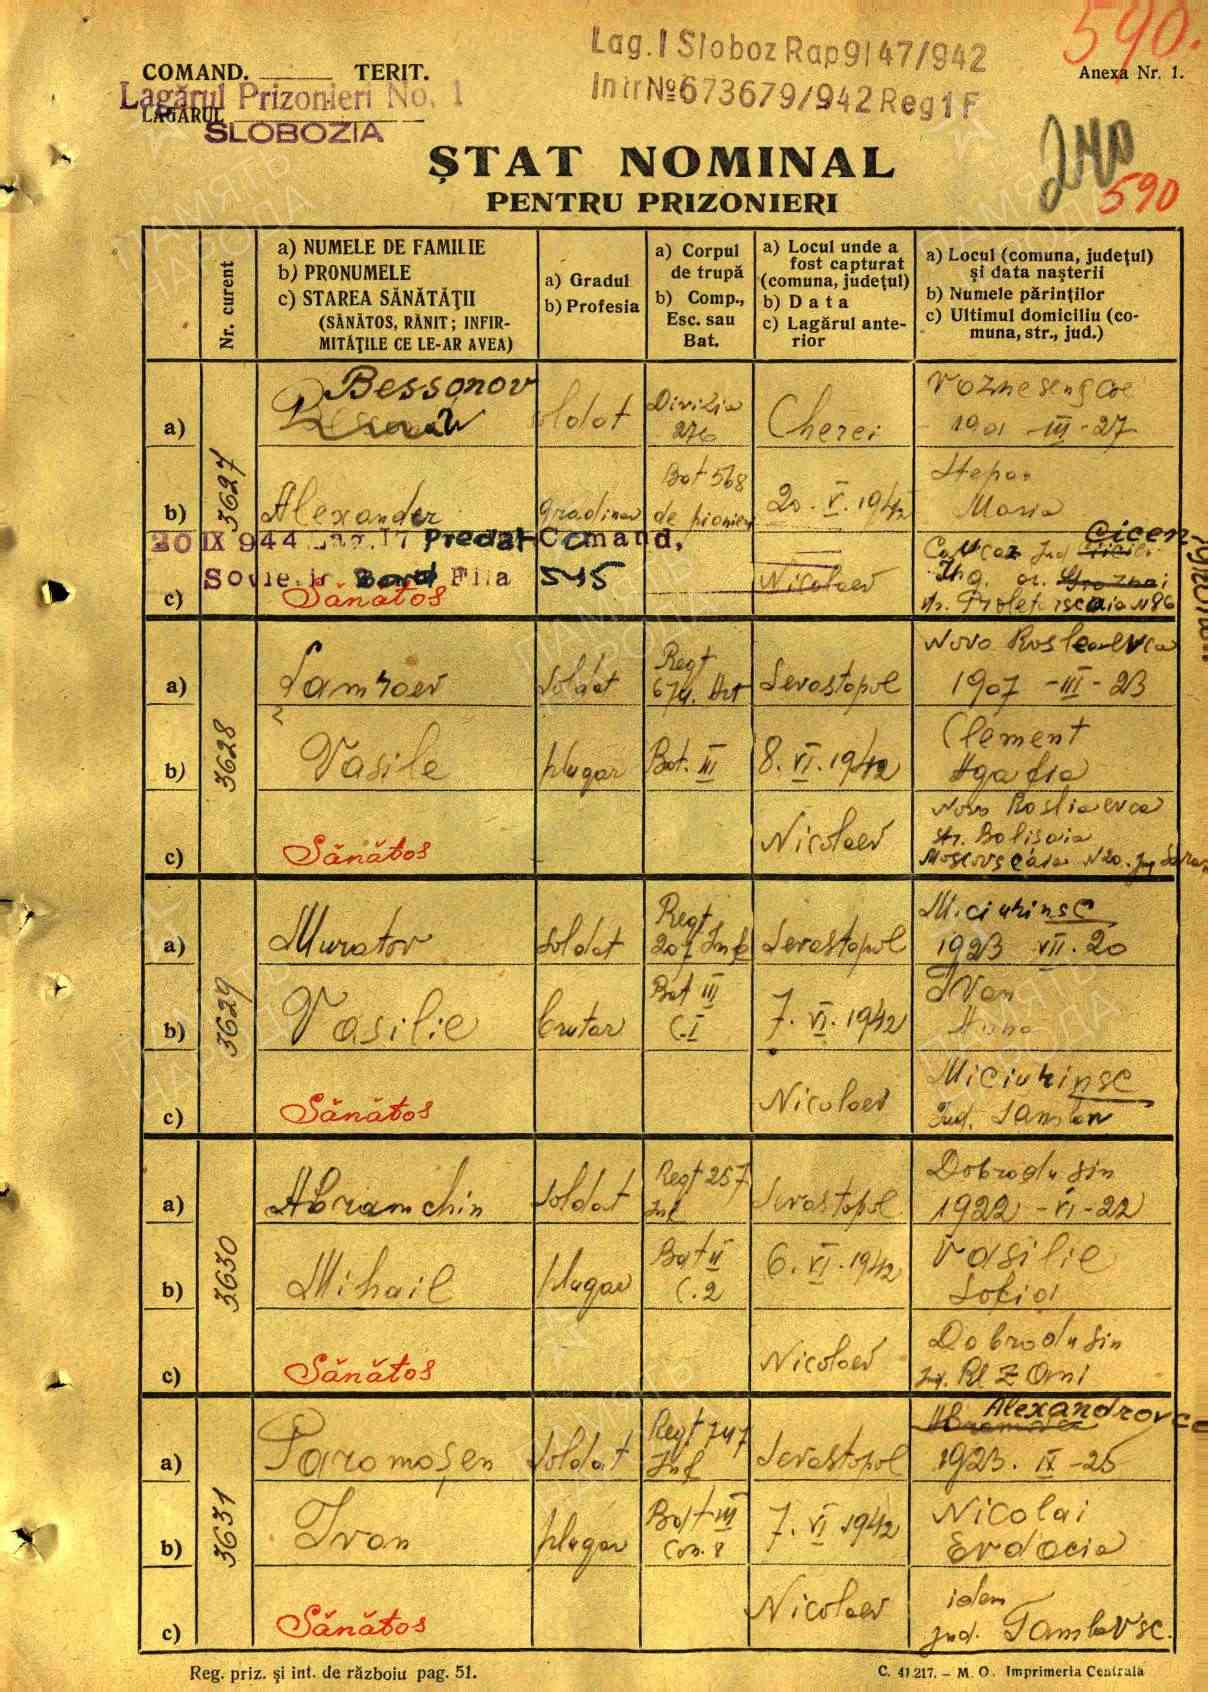 590.
Lag. I Sloboz Rap 9147/942
Intr № 673679/942 Reg 1 F
COMAND. TERIT.
Anexa Nr. 1.
Lagărul Prizonieri No. 1
LAGĂRUL
SLOBOZIA
240
590
ŞTAT NOMINAL
PENTRU PRIZONIERI
Nr. curent
a) NUMELE DE FAMILIE
b) PRONUMELE
c) STAREA SĂNĂTĂŢII
(SĂNĂTOS, RĂNIT; INFIR-
MITĂŢILE CE LE-AR AVEA)
a) Gradul
b) Profesia
a) Corpul
de trupă
b) Comp.,
Esc. sau
Bat.
a) Locul unde a
fost capturat
(comuna, judeţul)
b) Data
c) Lagărul ante-
rior
a) Locul (comuna, judeţul)
şi data naşterii
b) Numele părinţilor
c) Ultimul domiciliu (co-
muna, str., jud.)
3627
a)
Bessonov
soldat
Divizia
276
Cherci
1901 - III - 27
b)
Alexander
gradinar
Bat 568
de pionieri
20. V. 1942
Stepan
Maria
20 IX 944 Lag. 17 Predat Comand,
Soviet. Bord Fila 545
c)
Sănătos
Nicolaev
Caucaz Jud Cicen
or. Groznai
str. Proletarscaia N 86
3628
a)
Samsoev
soldat
Regt
674. Art
Sevastopol
Novo Roslaevca
1907 - III - 23
b)
Vasile
plugar
Bat. III
8. VI. 1942
Clement
Agafia
c)
Sănătos
Nicolaev
Novo Roslaevca
str. Bolişaia
Moscovscaia N 20.
3629
a)
Muratov
soldat
Regt
207 Inf
Sevastopol
Miciurinsc
1923 VII. 20
b)
Vasilie
brutar
Bat III
C. I
7. VI. 1942
Ivan
Anna
c)
Sănătos
Nicolaev
Miciurinsc
Jud. Tambov
3630
a)
Abramchin
soldat
Regt 257
Inf
Sevastopol
Dobroduşin
1922 - VI - 22
b)
Mihail
plugar
Bat II
C. 2
6. VI. 1942
Vasilie
Sofia
c)
Sănătos
Nicolaev
Dobroduşin
3631
a)
Paromoşen
soldat
Regt 747
Inf
Sevastopol
Alexandrovca
1923. IX - 25
b)
Ivan
plugar
Bat III
Com. 8
7. VI 1942
Nicolai
Evdocia
c)
Sănătos
Nicolaev
idem
jud. Tambovsc.
Reg. priz. şi int. de războiu pag. 51.
C. 41.217. – M. O. Imprimeria Centrala
ПАМЯТЬ
НАРОДА